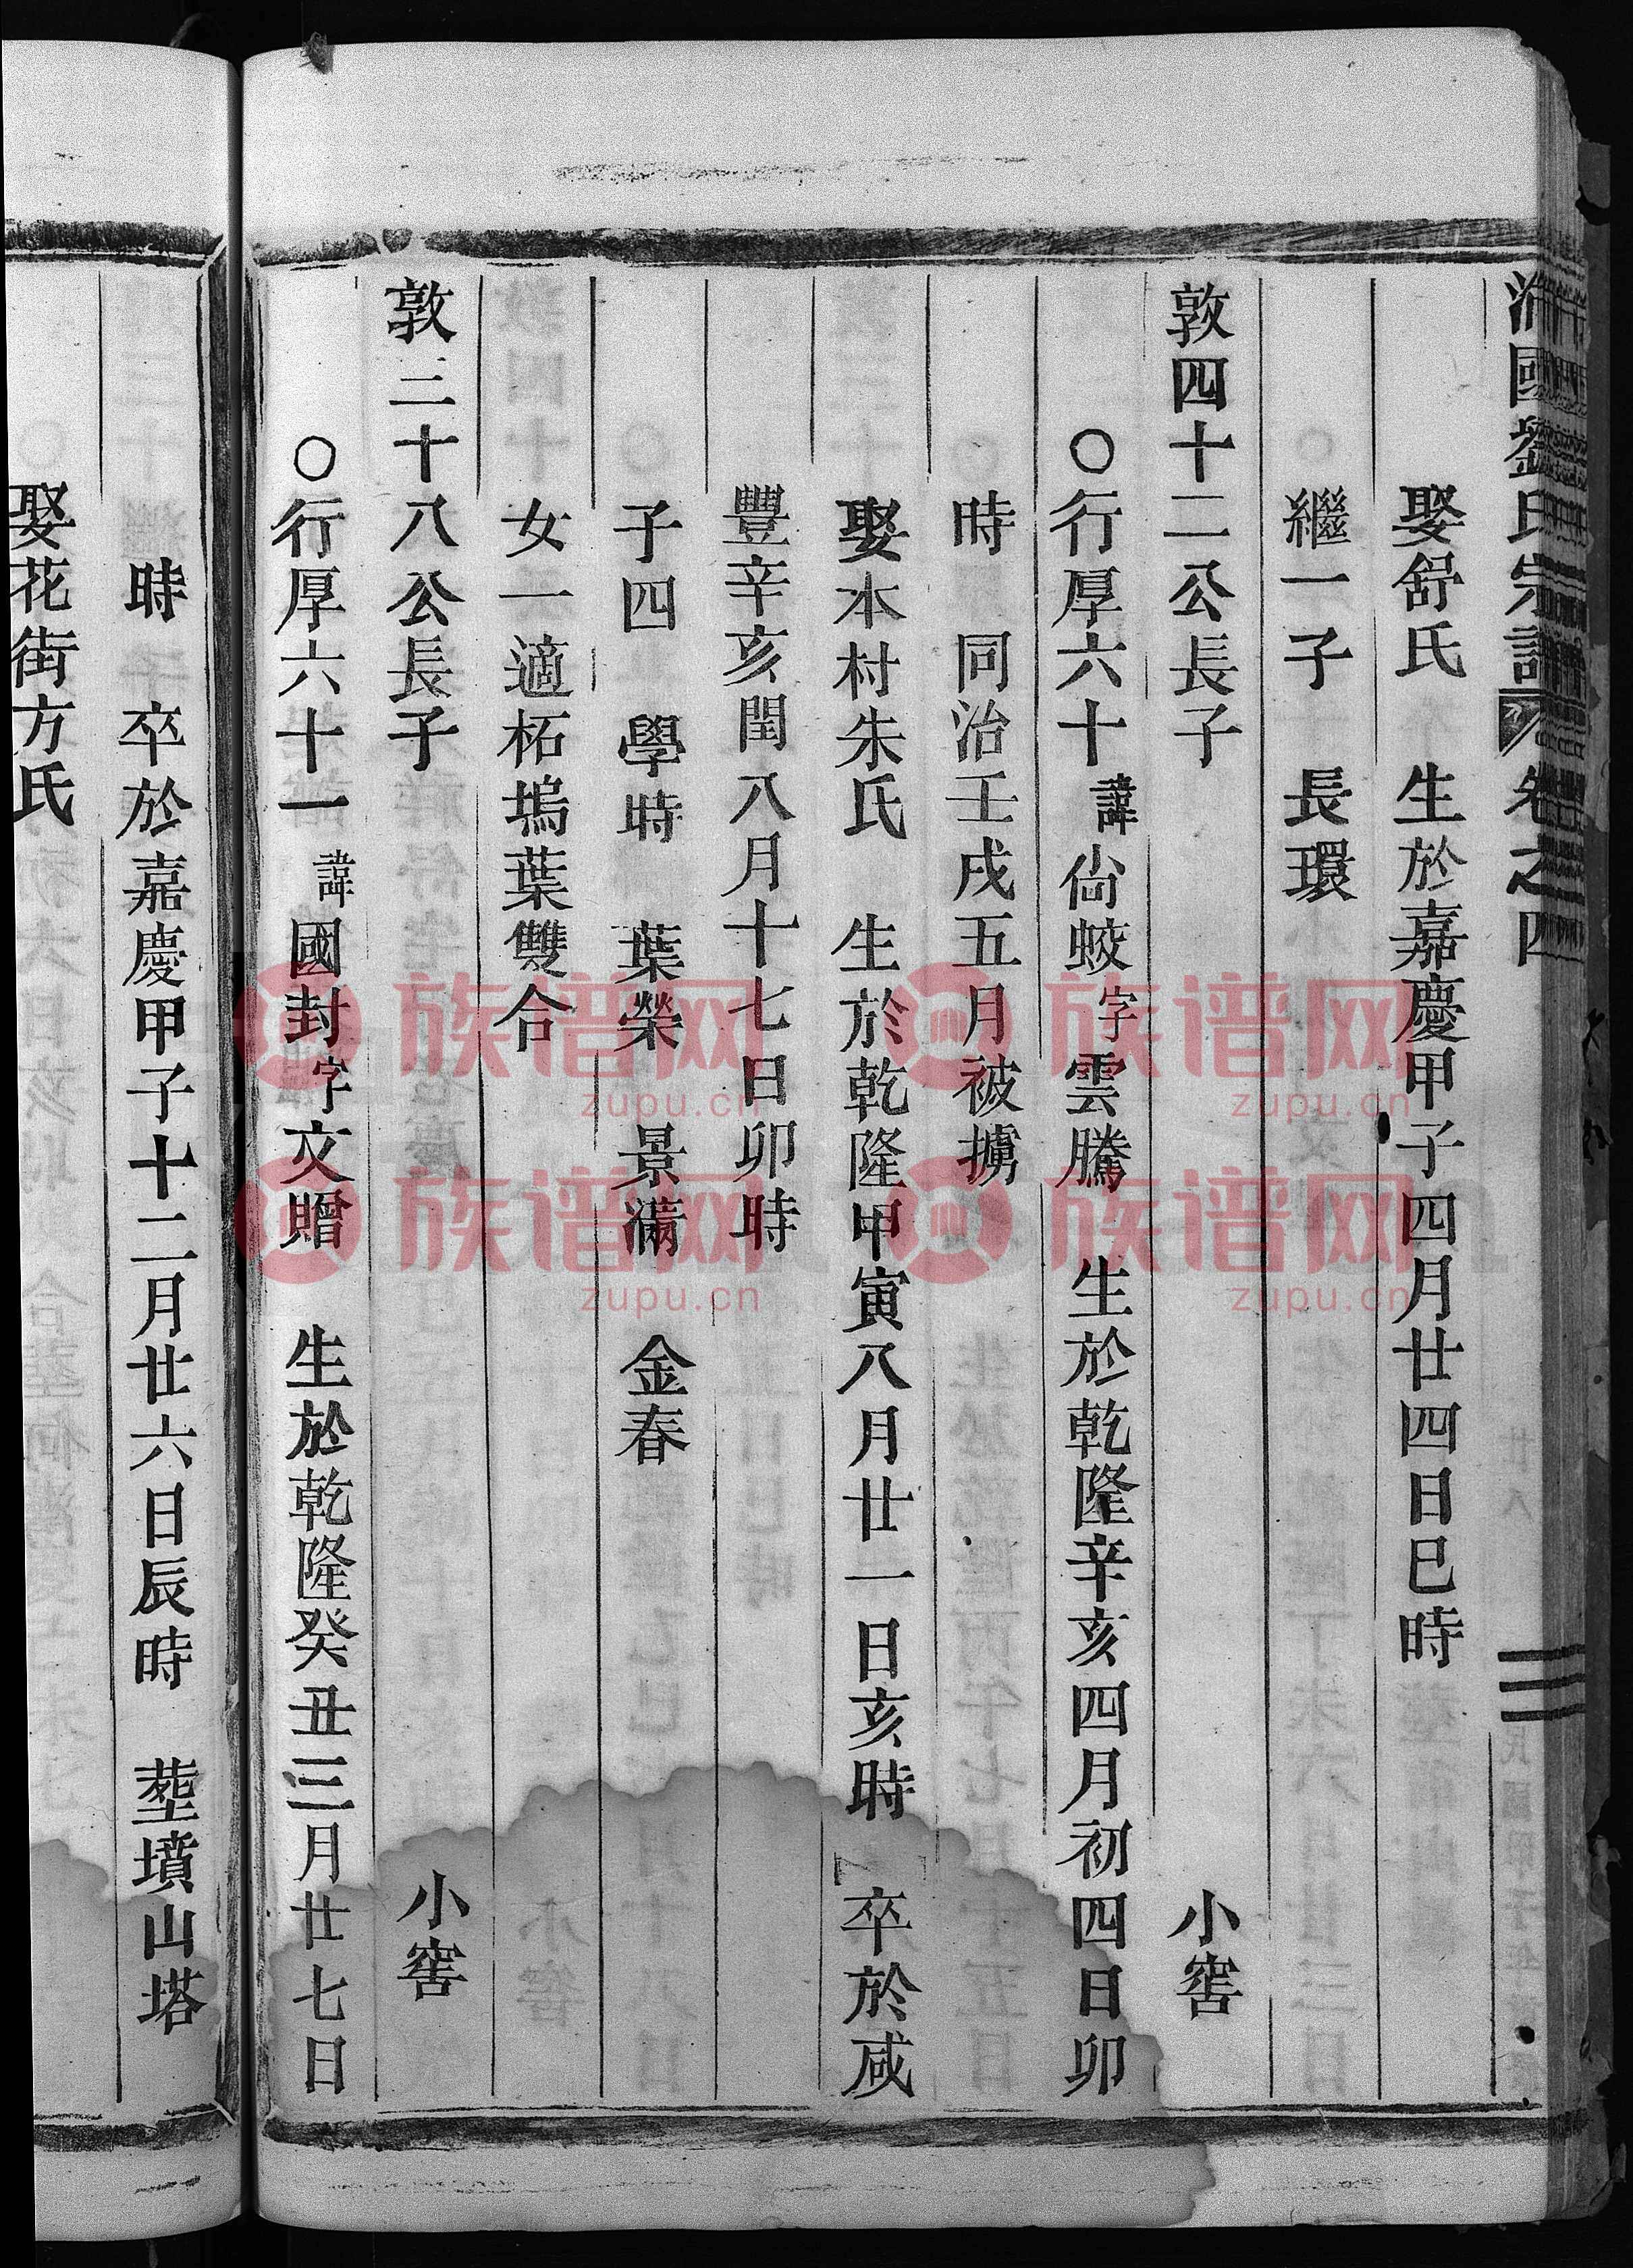 國劉氏宗譜 卷之四
娶舒氏 生於嘉慶甲子四月廿四日巳時
繼一子 長環
敦四十二公長子 小窖
○行厚六十諱尙蛟字雲騰 生於乾隆辛亥四月初四日卯
時 同治壬戌五月被擄
娶本村朱氏 生於乾隆甲寅八月廿一日亥時 卒於咸
豐辛亥閏八月十七日卯時
子四 學時 葉榮 景滿 金春
女一適柘塢葉雙合
敦二十八公長子 小窖
○行厚六十一諱國封字文贈 生於乾隆癸丑三月廿七日
時 卒於嘉慶甲子十二月廿六日辰時 塟墳山塔
娶花街方氏
族谱网
zupu.cn
族谱网
zupu.cn
族谱网
zupu.cn
族谱网
zupu.cn